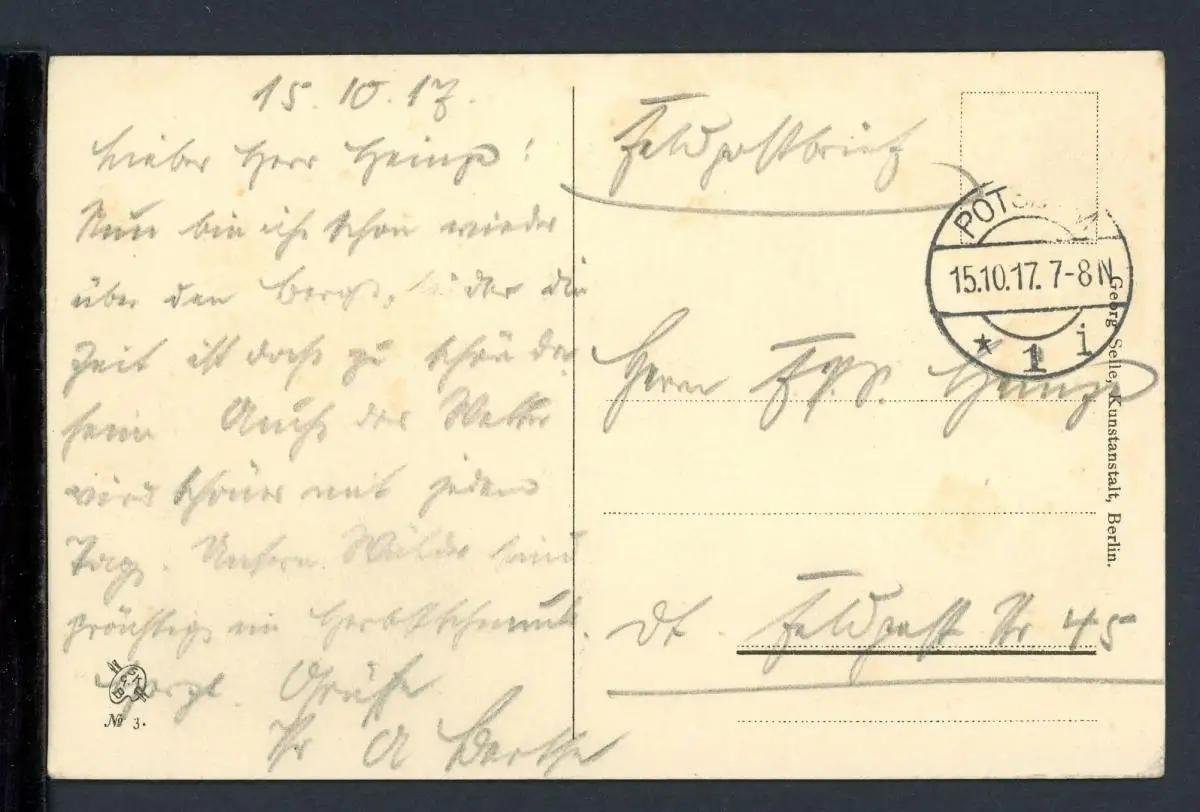 15.10.17.
Lieber Herr Heinze!
Nun bin ich schon wieder
über den Berge, der die
Zeit ist doch zu schön da
sein. Auch das Wetter
wird schöner mit jedem
Tage. Unsere Wälder sind
prächtig im Herbstschmuck.
Herzl. Grüße
Ihr A
Feldpostbrief
POTSDAM
15.10.17. 7-8 N
* 1 i
Herrn Heinze
dt. Feldpost Nr 45
Georg Selle, Kunstanstalt, Berlin.
№ 3.